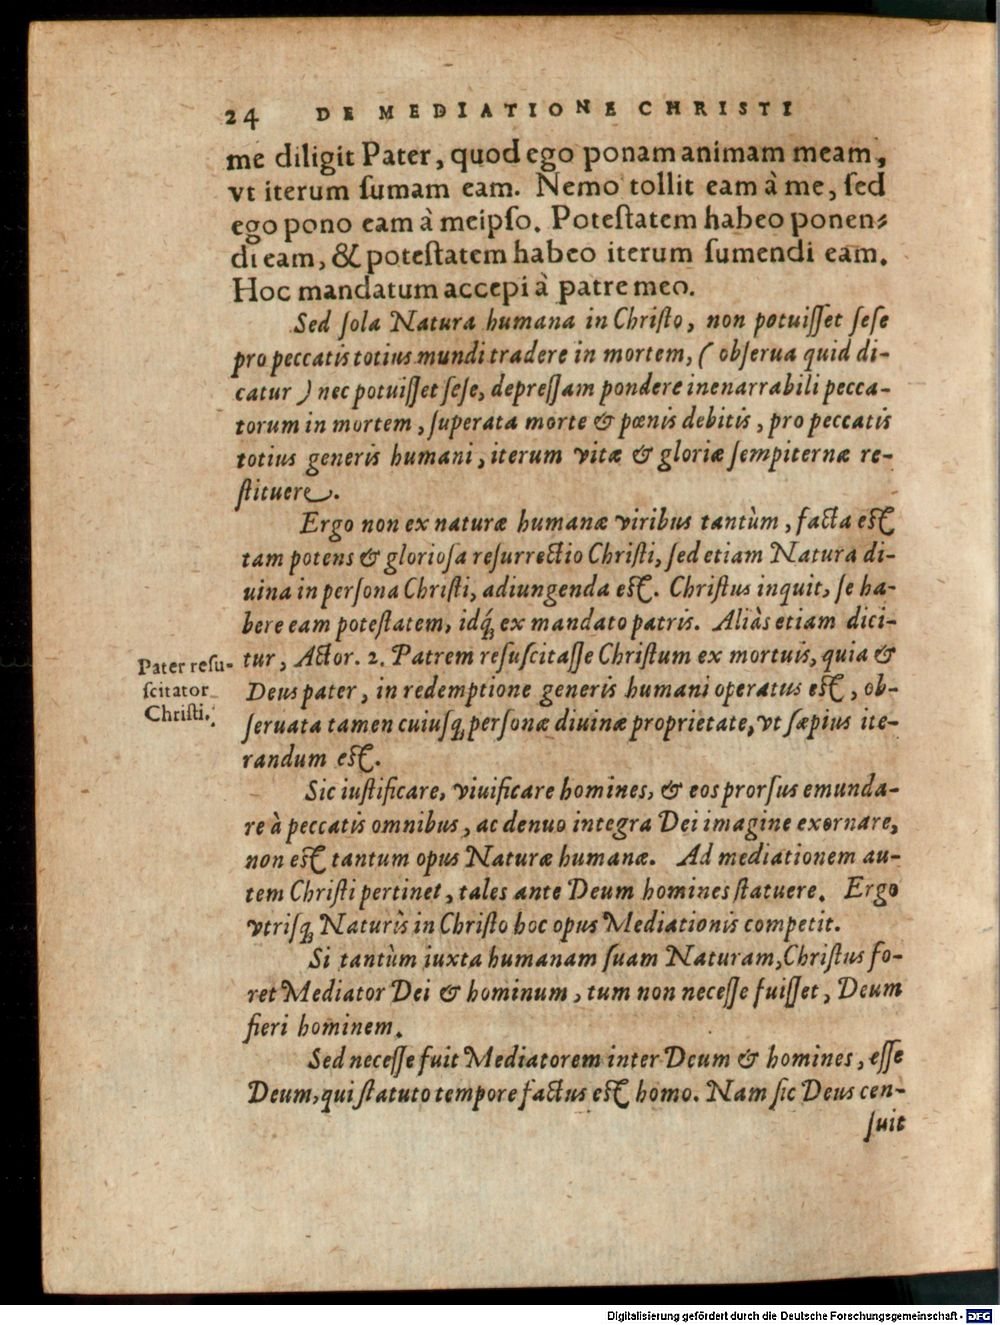 24 DE MEDIATIONE CHRISTI
me diligit Pater, quod ego ponam animam meam,
vt iterum ſumam eam. Nemo tollit eam à me, ſed
ego pono eam à meipſo. Poteſtatem habeo ponen-
di eam, & poteſtatem habeo iterum ſumendi eam.
Hoc mandatum accepi à patre meo.
Sed ſola Natura humana in Chriſto, non potuiſſet ſeſe
pro peccatis totius mundi tradere in mortem, ( obſerua quid di-
catur ) nec potuiſſet ſeſe, depreſſam pondere inenarrabili pecca-
torum in mortem, ſuperata morte & pœnis debitis, pro peccatis
totius generis humani, iterum vitæ & gloriæ ſempiternæ re-
ſtituere.
Ergo non ex naturæ humanæ viribus tantùm, facta eſt
tam potens & glorioſa reſurrectio Chriſti, ſed etiam Natura di-
uina in perſona Chriſti, adiungenda eſt. Chriſtus inquit, ſe ha-
bere eam poteſtatem, idq́; ex mandato patris. Aliàs etiam dici-
tur, Actor. 2. Patrem reſuſcitaſſe Chriſtum ex mortuis, quia &
Deus pater, in redemptione generis humani operatus eſt, ob-
ſeruata tamen cuiuſq; perſonæ diuinæ proprietate, vt ſæpius ite-
randum eſt.
Pater reſu-
ſcitator
Chriſti.
Sic iuſtificare, viuificare homines, & eos prorſus emunda-
re à peccatis omnibus, ac denuo integra Dei imagine exornare,
non eſt tantum opus Naturæ humanæ. Ad mediationem au-
tem Chriſti pertinet, tales ante Deum homines ſtatuere. Ergo
vtriſq; Naturis in Chriſto hoc opus Mediationis competit.
Si tantùm iuxta humanam ſuam Naturam, Chriſtus fo-
ret Mediator Dei & hominum, tum non neceſſe fuiſſet, Deum
fieri hominem.
Sed neceſſe fuit Mediatorem inter Deum & homines, eſſe
Deum, qui ſtatuto tempore factus eſt homo. Nam ſic Deus cen-
ſuit
Digitalisierung gefördert durch die Deutsche Forschungsgemeinschaft - DFG